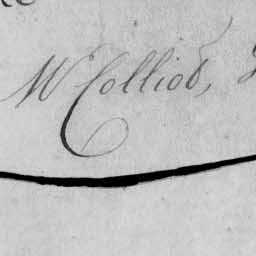 Mr Colliod,